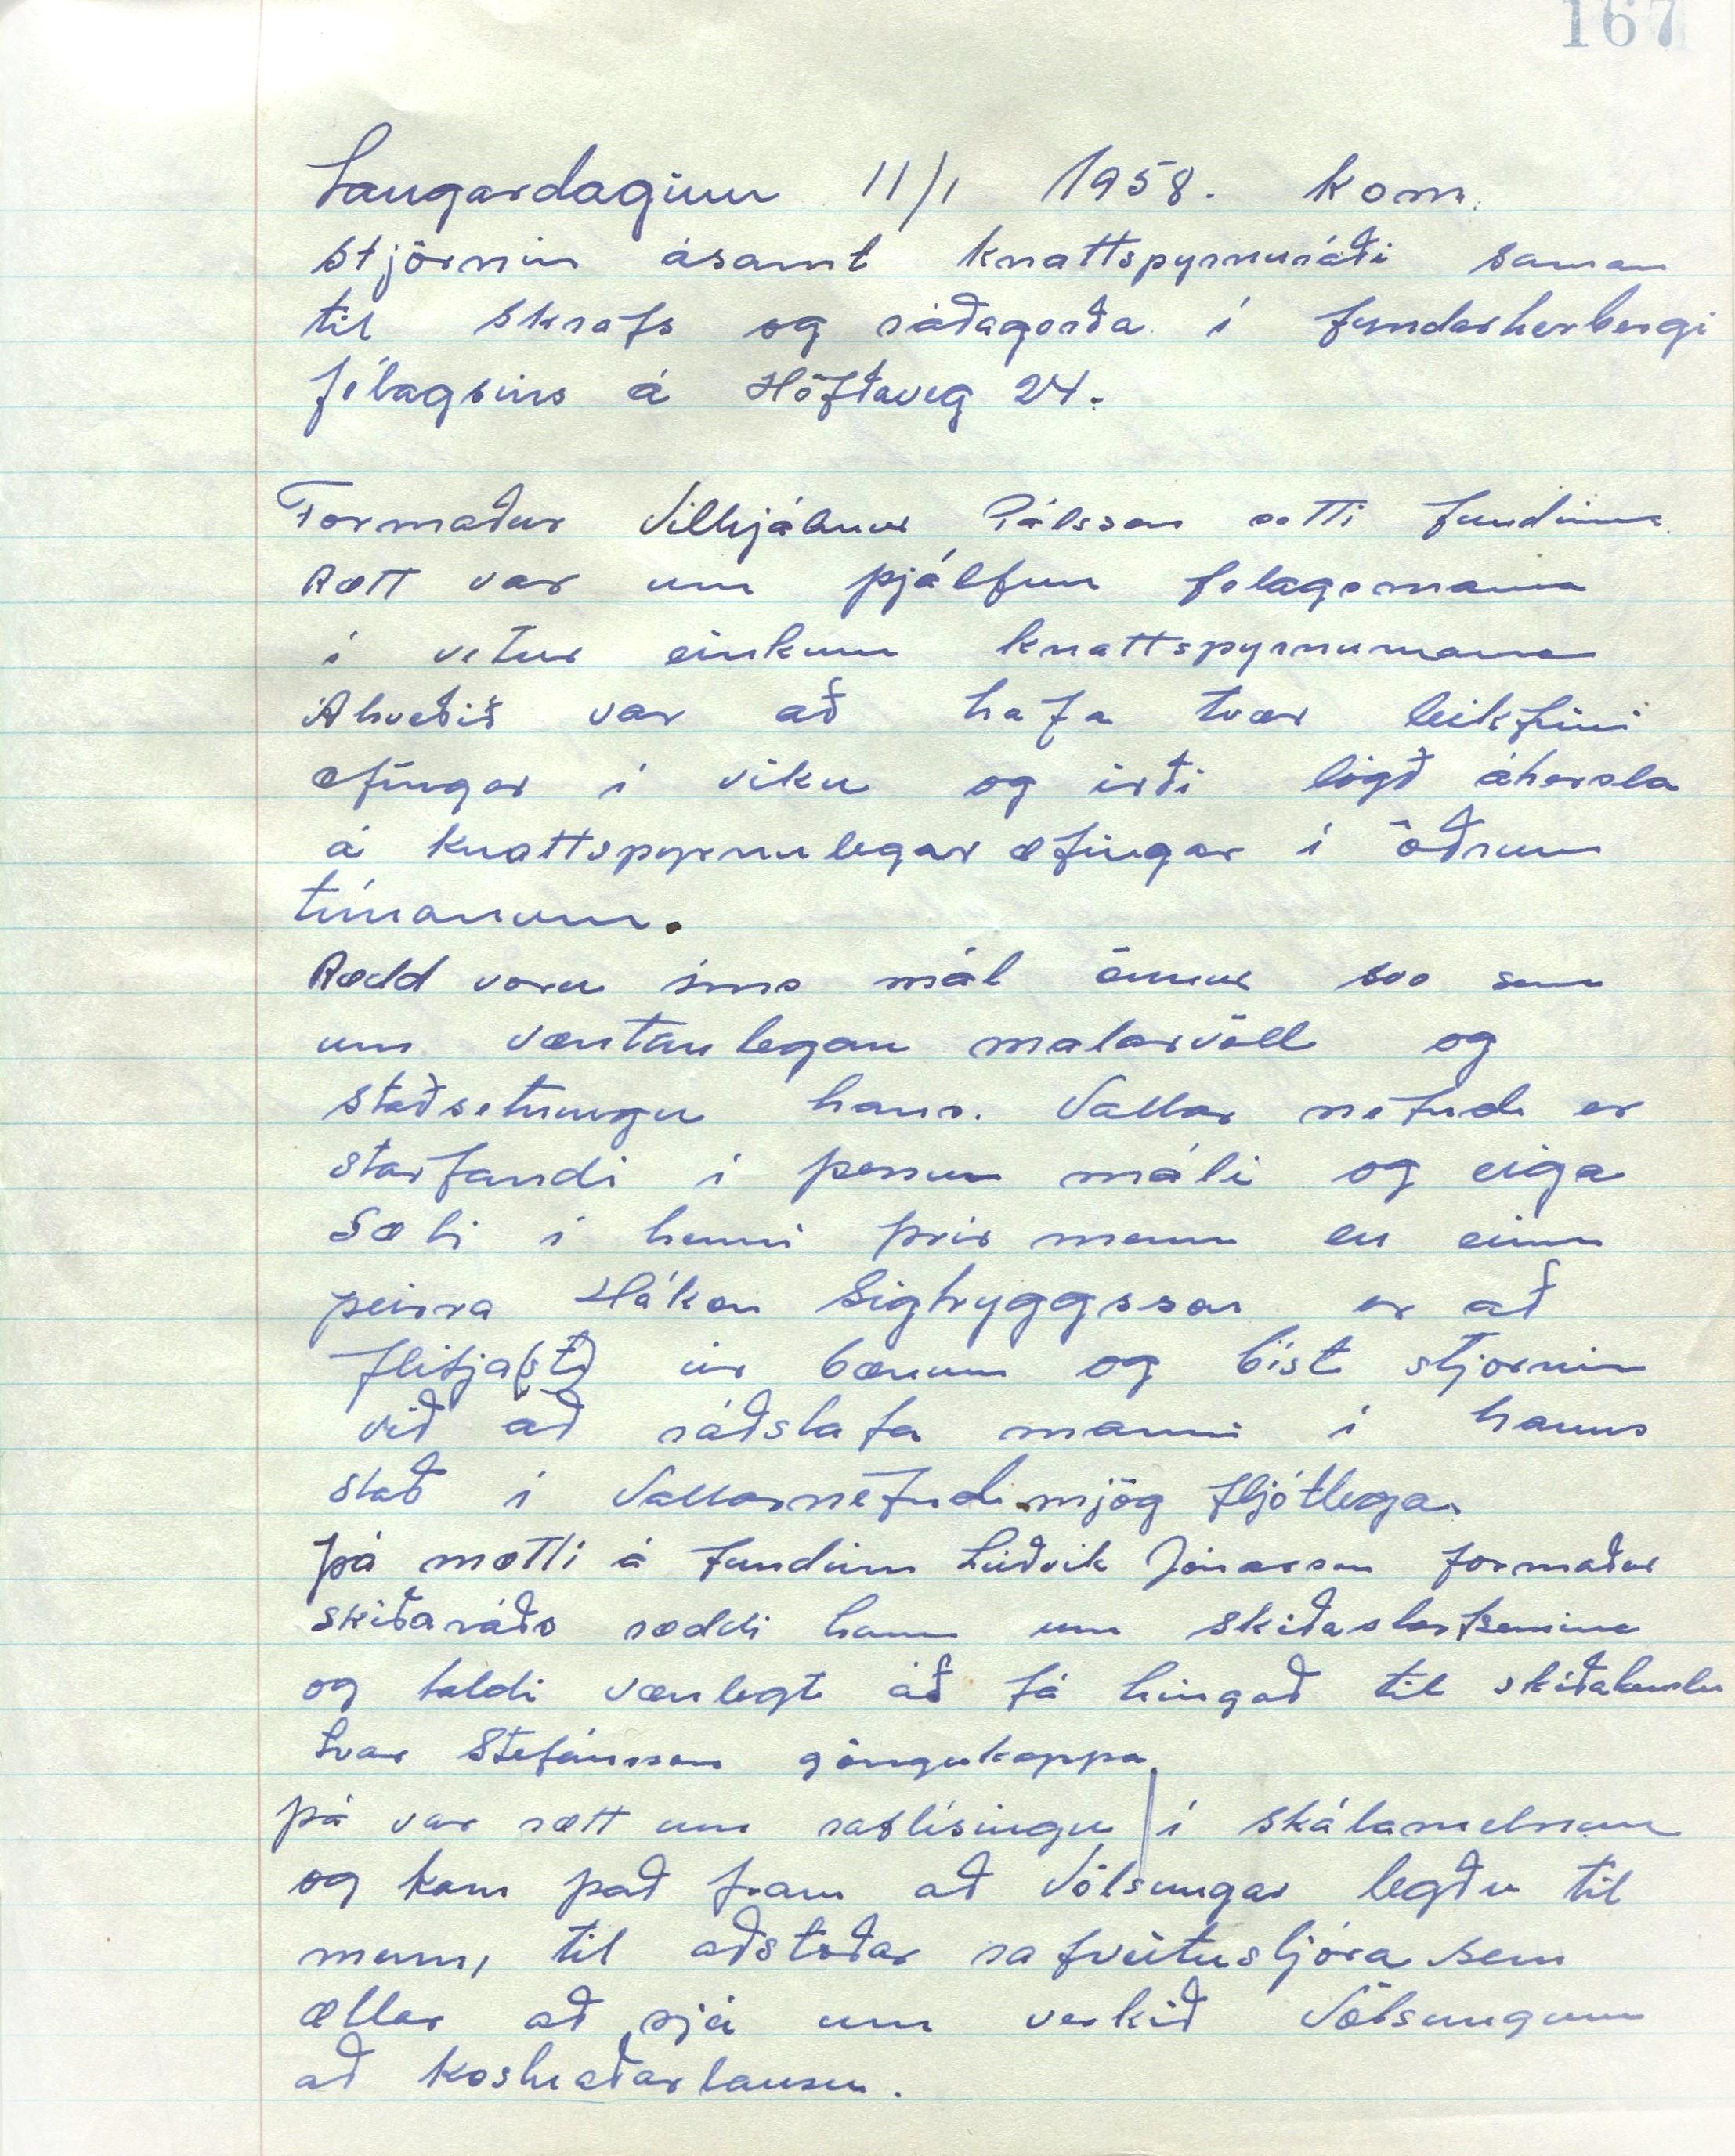 167
Laugardaginn 11/1 1958. kom
stjórnin ásamt knattspyrnuráði saman
til skrafs og ráðagerða í fundarherbergi
félagsins á Höfðaveg 24.
Formaður Vilhjálmur Pálsson setti fundinn
Rætt var um þjálfun félagsmanna
í vetur einkum knattspyrnumanna
Ákveðið var að hafa tvær leikfimi
æfingar í viku og irði lögð áhersla
á knattspyrnulegar æfingar í öðrum
tímanum.
Rædd voru ims mál önnur svo sem
um væntanlegan malarvöll og
staðsetningu hans. Vallar nefnd er
starfandi í þessu máli og eiga
sæti í henni þrir menn en einn
þeirra Hákon Sigtryggsson er að
flitja(st) úr bænum og bist stjórnin
við að ráðstafa manni í hanns
stað í Vallarnefnd mjög fljótlega.
þá mætti á fundinn Lúðvik Jónasson formaður
skíðaráðs ræddi hann um skíðastarfsemina
og taldi vænlegt að fá hingað til skíðakenslu
Ívar Stefánsson göngukappa.
þá var rætt um raflisingu í skálamelnum
og kom það fram að Völsungar legðu til
menn, til aðstoðar rafveitustjóra sem
ætlar að sjá um verkið Völsungum
að kostnaðarlausu.